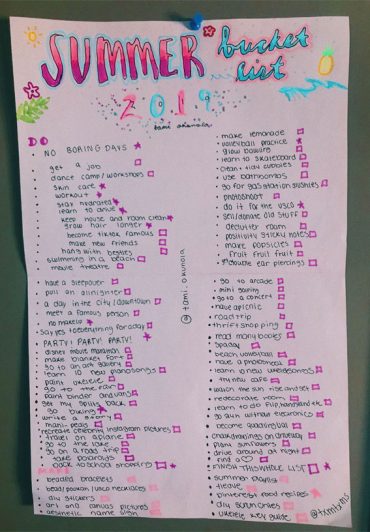 SUMMER bucket list
2019
tami okunola
DO
NO BORING DAYS
get a job
dance camp/workshops
skin care
workout
stay hydrated
learn to drive
keep house and room clean
grow hair longer
become tiktok famous
make new friends
hang with besties
swimming in a beach
movie theatre
have a sleepover
pull an allnighter
a day in the city/downtown
meet a famous person
no makeup
say yes to everything for a day
PARTY! PARTY! PARTY!
disney movie marathon
make blanket fort
go to an art gallery
learn 10 new piano songs
paint ukelele
go to the fair
paint binder and vans
get my splits back
go biking
write a story
mani-pedi
recreate celebrity instagram pictures
travel on a plane
go to the lake
go on a road trip
take polaroids
back to school shopping
MAKE
beaded bracelets
bead/button/vsco necklaces
diy stickers
art and canvas pictures
aesthetic name sign
make lemonade
volleyball practice
glow bowling
learn to skateboard
clean + tidy cubbies
use bathbombs
go for gas station slushies
photoshoot
do it for the vsco
sell/donate old stuff
declutter room
positivity sticky notes
make popsicles
fruit fruit fruit
double ear piercings
@tami.okunola
go to arcade
mini golfing
go to a concert
have a picnic
road trip
thrift shopping
read many books
spaday
beach volleyball
have a photoshoot
learn 10 new uke songs
try new cafe
watch the sun rise and set
redecorate room
learn to do flip, handstand etc.
go 24h without electronics
become quadlingual
chalk drawings on driveway
plant sunflowers
drive around at night
find a
FINISH THIS WHOLE LIST
summer playlist
tie dye
pinterest food recipes
diy scrunchies
ukelele key guide
@txmixmi